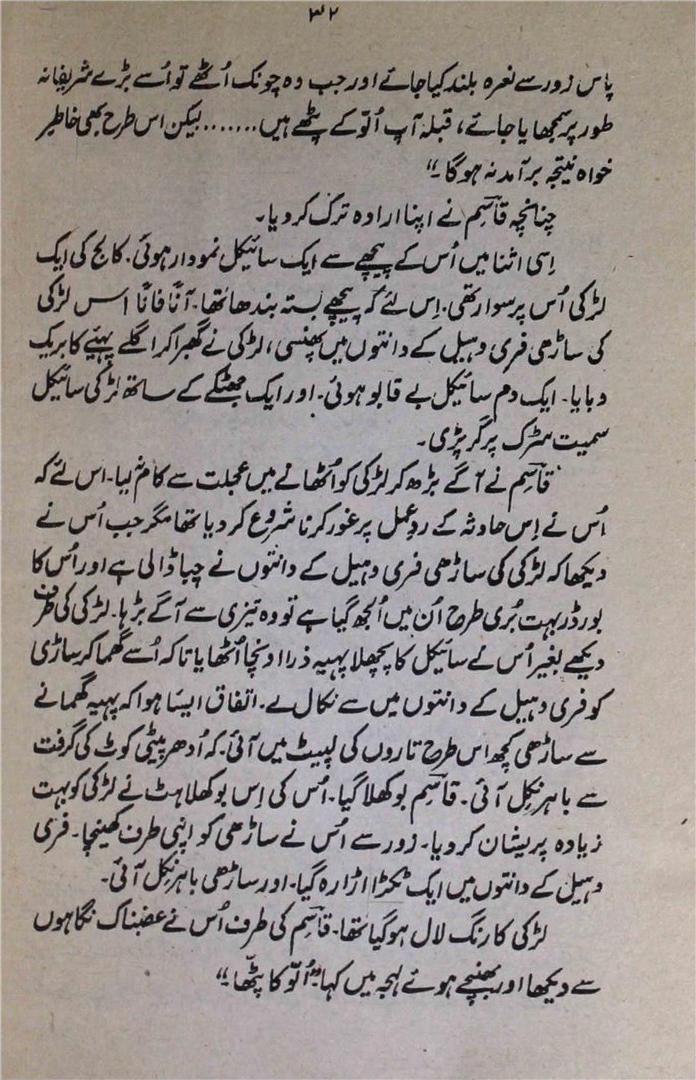 ۳۲
پاس زور سے نعرہ بلند کیا جائے اور جب وہ چونک اُٹھے تو اُسے بڑے شریفانہ
طور پر سمجھایا جائے، قبلہ آپ اُلّو کے پٹھے ہیں.......لیکن اس طرح بھی خاطر
خواہ نتیجہ برآمد نہ ہوگا۔"
چنانچہ قاسم نے اپنا ارادہ ترک کر دیا۔
اِسی اثنا میں اُس کے پیچھے سے ایک سائیکل نمودار ہوئی۔ کالج کی ایک
لڑکی اُس پر سوار تھی۔ اِس لئے کہ پیچھے بستہ بندھا تھا۔ آناً فاناً اس لڑکی
کی ساڑھی فری وہیل کے دانتوں میں پھنسی، لڑکی نے گھبرا کر اگلے پہیے کا بریک
دبایا۔ ایک دم سائیکل بے قابو ہوئی۔ اور ایک جھٹکے کے ساتھ لڑکی سائیکل
سمیت سڑک پر گر پڑی۔
قاسم نے آگے بڑھ کر لڑکی کو اُٹھانے میں عجلت سے کام نہ لیا۔ اس لئے کہ
اُس نے اِس حادثہ کے ردِعمل پر غور کرنا شروع کر دیا تھا مگر جب اُس نے
دیکھا کہ لڑکی کی ساڑھی فری وہیل کے دانتوں نے چبا ڈالی ہے اور اُس کا
بورڈر بہت بُری طرح اُن میں اُلجھ گیا ہے تو وہ تیزی سے آگے بڑہا۔ لڑکی کی طرف
دیکھے بغیر اُس نے سائیکل کا پچھلا پہیہ ذرا اونچا اُٹھایا تاکہ اُسے گھما کر ساڑی
کو فری وہیل کے دانتوں میں سے نکال لے۔ اتفاق ایسا ہوا کہ پہیہ گھمانے
سے ساڑھی کچھ اس طرح تاروں کی لپیٹ میں آئی۔ کہ اُدھر پیٹی کوٹ کی گرفت
سے باہر نکل آئی۔ قاسم بوکھلا گیا۔ اُس کی اِس بوکھلاہٹ نے لڑکی کو بہت
زیادہ پریشان کر دیا۔ زور سے اُس نے ساڑھی کو اپنی طرف کھینچا۔ فری
وہیل کے دانتوں میں ایک ٹکڑا اڑا رہ گیا۔ اور ساڑھی باہر نکل آئی۔
لڑکی کا رنگ لال ہو گیا تھا۔ قاسم کی طرف اُس نے غضبناک نگاہوں
سے دیکھا اور بھنچے ہوئے لہجہ میں کہا "اُلّو کا پٹھا۔"